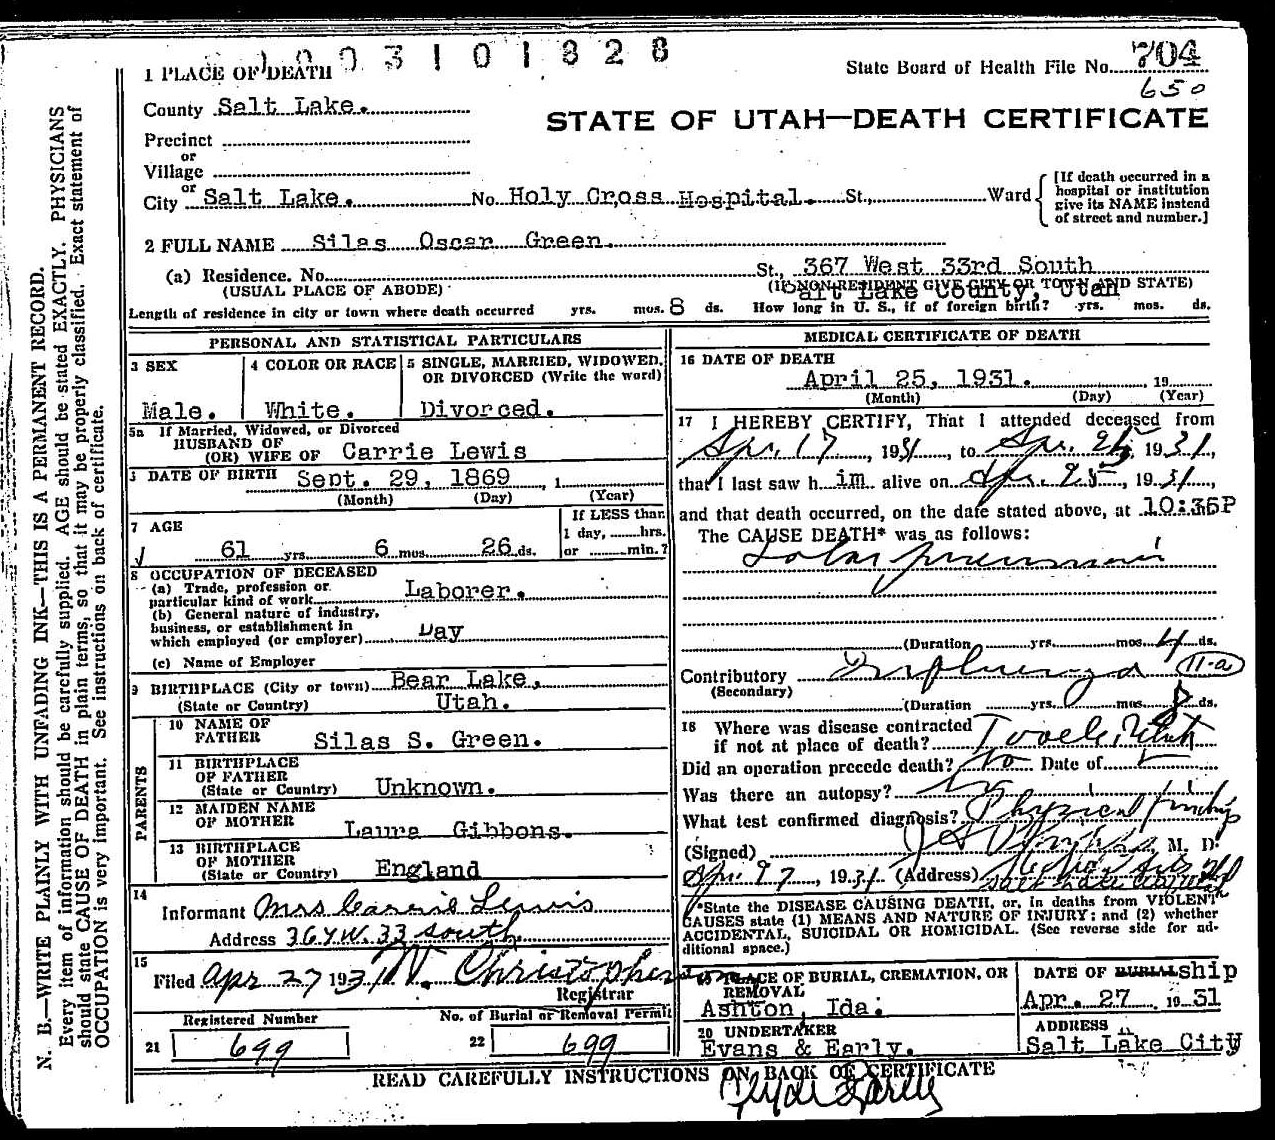 0 0 3 1 0 1 8 2 8
1 PLACE OF DEATH
State Board of Health File No. 704
650
County Salt Lake.
STATE OF UTAH—DEATH CERTIFICATE
Precinct
or
Village
or
City Salt Lake. No. Holy Cross Hospital. St., Ward
[If death occurred in a
hospital or institution
give its NAME instead
of street and number.]
2 FULL NAME Silas Oscar Green.
(a) Residence. No. St., 367 West 33rd South
(USUAL PLACE OF ABODE) (IF NON-RESIDENT GIVE CITY OR TOWN AND STATE)
Salt Lake County, Utah
Length of residence in city or town where death occurred yrs. mos. 8 ds. How long in U. S., if of foreign birth? yrs. mos. ds.
PERSONAL AND STATISTICAL PARTICULARS
3 SEX
Male.
4 COLOR OR RACE
White.
5 SINGLE, MARRIED, WIDOWED,
OR DIVORCED (Write the word)
Divorced.
5a If Married, Widowed, or Divorced
HUSBAND OF
(OR) WIFE OF Carrie Lewis
DATE OF BIRTH Sept. 29, 1869, 1
(Month) (Day) (Year)
7 AGE
61 yrs. 6 mos. 26 ds.
If LESS than
1 day, hrs.
or min.?
8 OCCUPATION OF DECEASED
(a) Trade, profession or
particular kind of work Laborer.
(b) General nature of industry,
business, or establishment in
which employed (or employer) Day
(c) Name of Employer
9 BIRTHPLACE (City or town) Bear Lake,
(State or Country) Utah.
PARENTS
10 NAME OF
FATHER Silas S. Green.
11 BIRTHPLACE
OF FATHER
(State or Country) Unknown.
12 MAIDEN NAME
OF MOTHER Laura Gibbons.
13 BIRTHPLACE
OF MOTHER
(State or Country) England
14
Informant Mrs Carrie Lewis
Address 367 W. 33 south
15
Filed Apr 27 1931 W. Christopherson
Registrar
Registered Number
21 699
No. of Burial or Removal Permit
22 699
MEDICAL CERTIFICATE OF DEATH
16 DATE OF DEATH
April 25, 1931. 19
(Month) (Day) (Year)
17 I HEREBY CERTIFY, That I attended deceased from
Apr. 17, 1931, to Apr. 25, 1931,
that I last saw h im alive on Apr. 25, 1931,
and that death occurred, on the date stated above, at 10:35P
The CAUSE DEATH* was as follows:
Lobar pneumonia
(Duration yrs. mos. 4 ds.
Contributory Influenza 11-a
(Secondary)
(Duration yrs. mos. 8 ds.
18 Where was disease contracted
if not at place of death? Tooele, Utah
Did an operation precede death? No Date of
Was there an autopsy? No
What test confirmed diagnosis? Physical findings
(Signed) M. D.
Apr. 27, 1931 (Address)
Salt Lake City, Utah
*State the DISEASE CAUSING DEATH, or, in deaths from VIOLENT
CAUSES state (1) MEANS AND NATURE OF INJURY; and (2) whether
ACCIDENTAL, SUICIDAL OR HOMICIDAL. (See reverse side for ad-
ditional space.)
19 PLACE OF BURIAL, CREMATION, OR
REMOVAL
Ashton, Ida.
DATE OF BURIAL ship
Apr. 27 1931
20 UNDERTAKER
Evans & Early.
ADDRESS
Salt Lake City
READ CAREFULLY INSTRUCTIONS ON BACK OF CERTIFICATE
Clyde Early
N. B.—WRITE PLAINLY WITH UNFADING INK—THIS IS A PERMANENT RECORD.
Every item of information should be carefully supplied. AGE should be stated EXACTLY. PHYSICIANS
should state CAUSE OF DEATH in plain terms, so that it may be properly classified. Exact statement of
OCCUPATION is very important. See instructions on back of certificate.